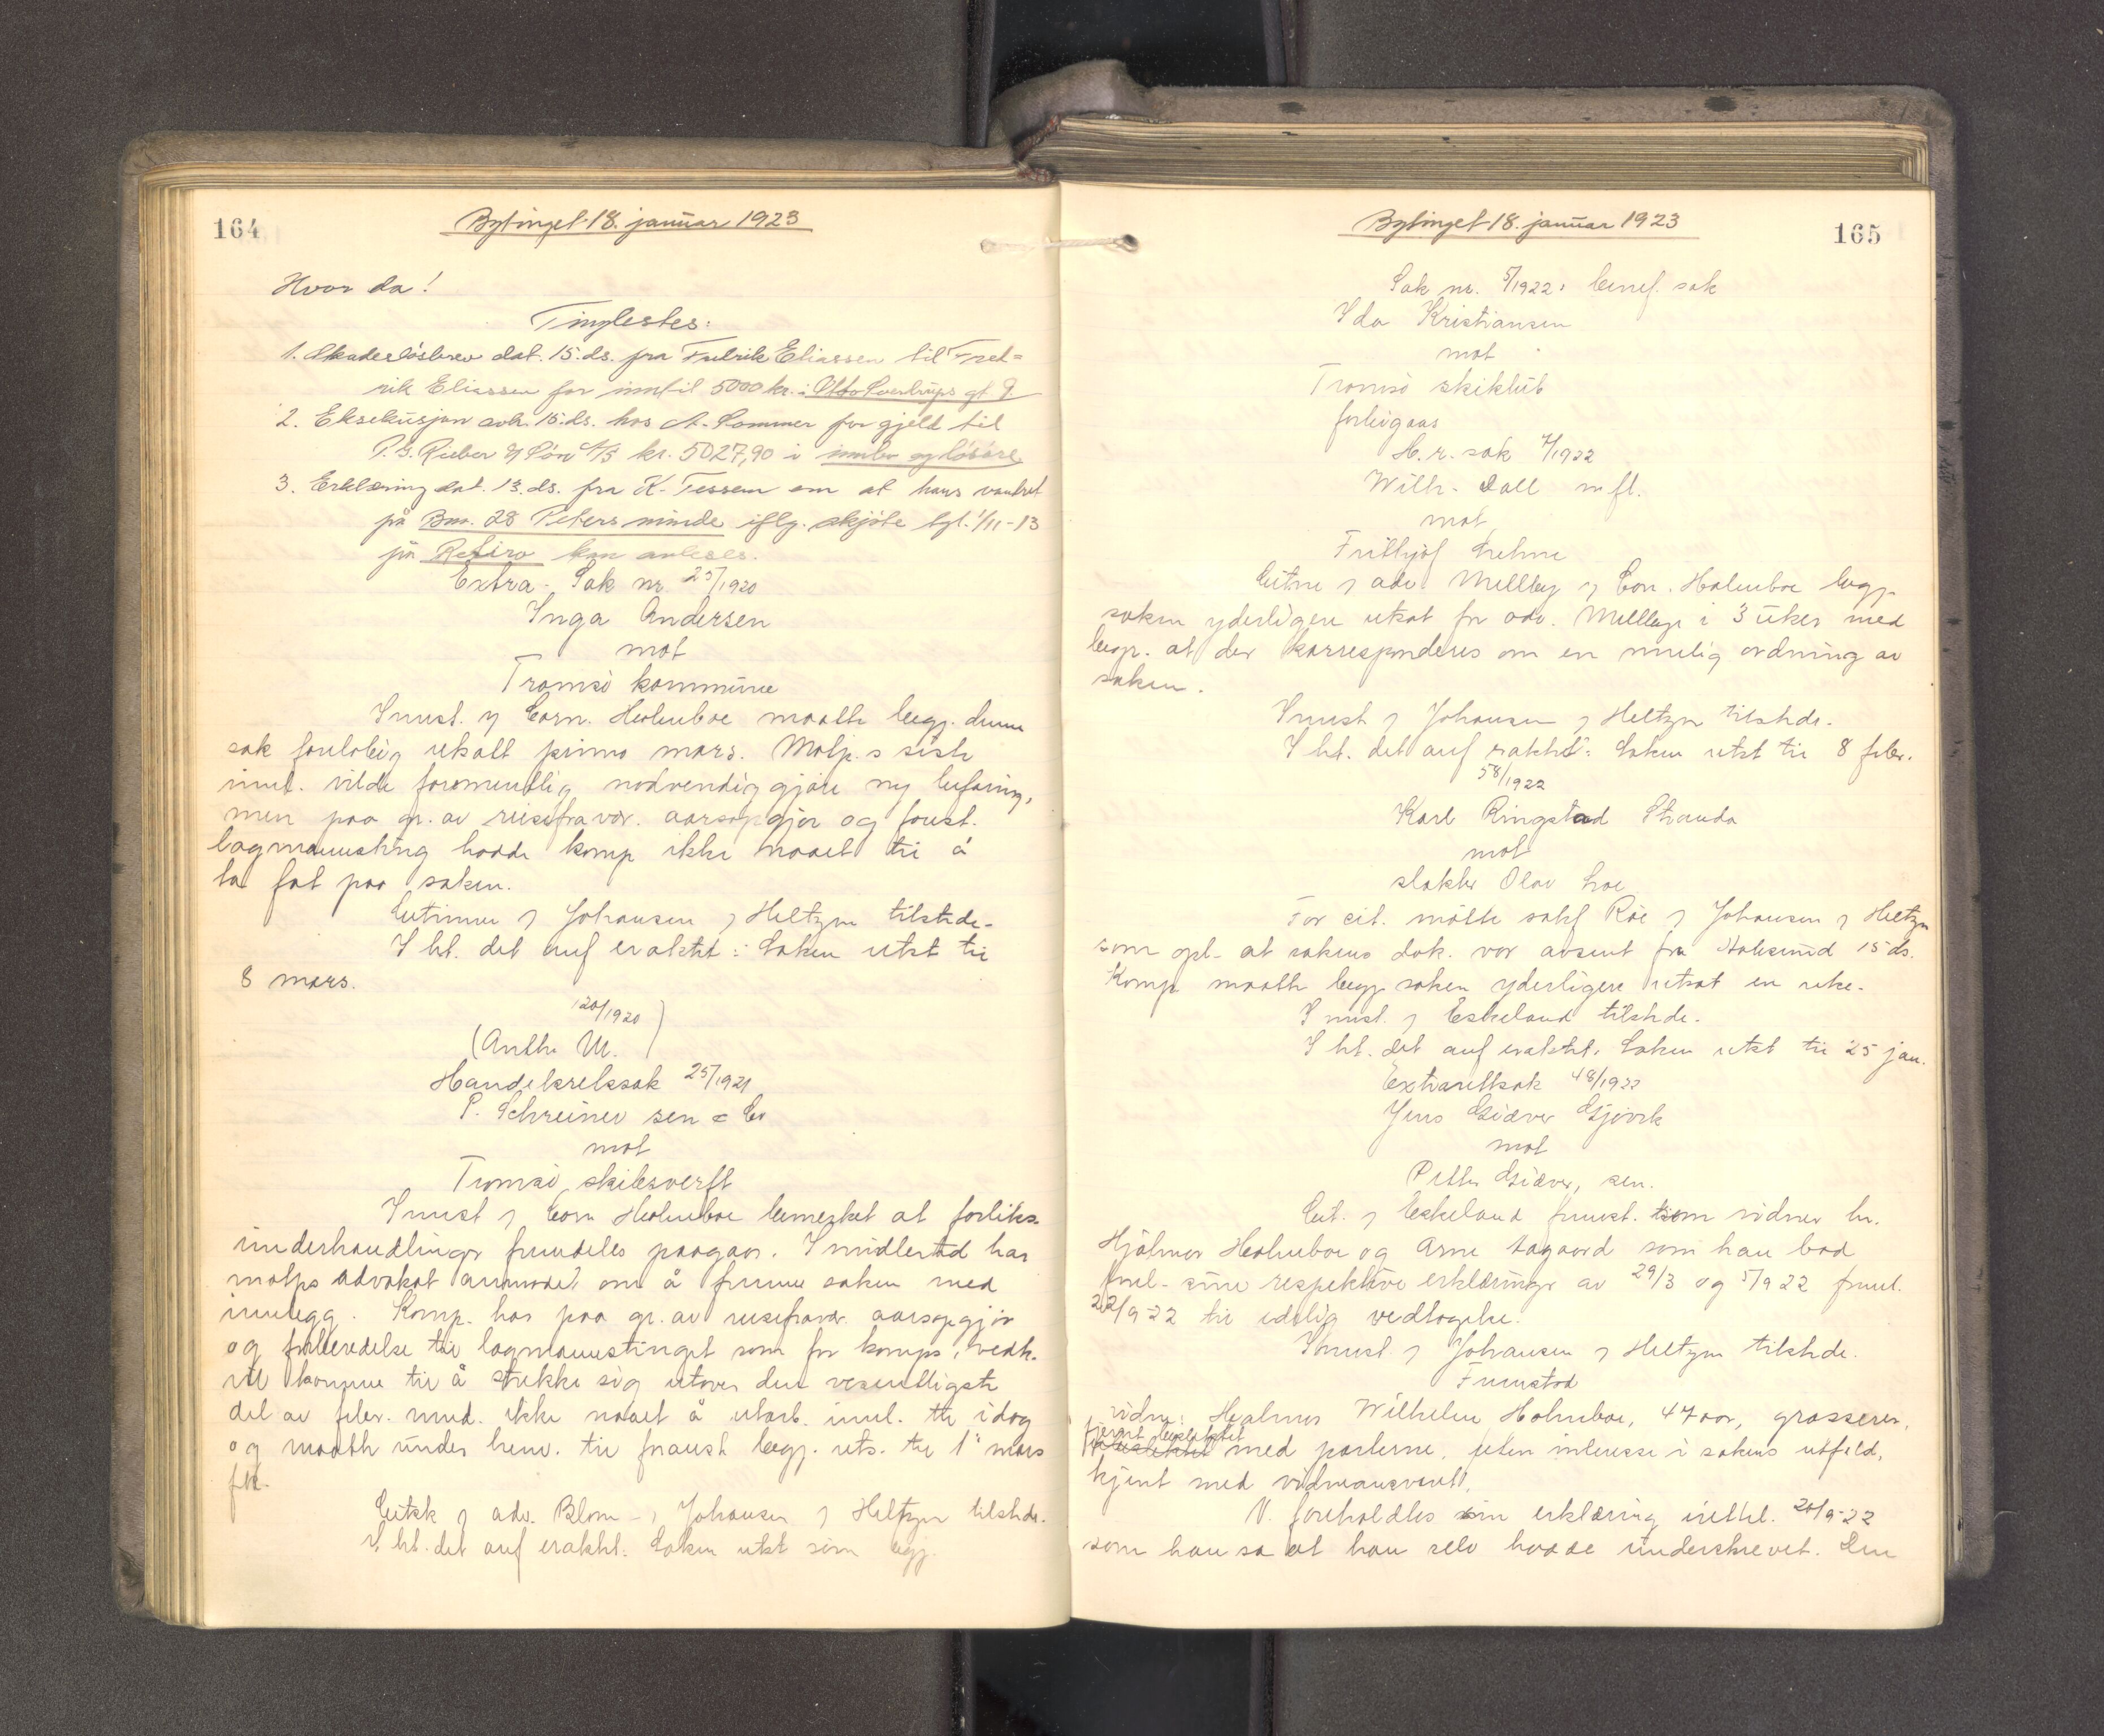 164
Bytinget 18. januar 1923
Hvor da!
Tinglestes:
1. Skadesløsbrev dat. 15. ds. fra Fredrik Eliassen til Fred=
rik Eliassen for inntil 5000 kr. i Otto Sverdrups gt. 9.
2. Eksekusjon avh. 15. ds. hos A. Sommer for gjeld til
P. G. Rieber & Søn A/S kr. 5027,90 i innbo og løsøre
3. Erklæring dat. 13. ds. fra K. Tessem om at hans
på Bno. 28 Peters minde iflg. skjøte tgl. 1/11-13
på Retiro kan avleses.
Extra. Sak nr. 25/1920
Inga Andersen
mot
Tromsø kommune
Innst. v Corn. Holmboe maatte begj. denne
sak foreløbig utsatt primo mars. Motp.s siste
innl. vilde formentlig nødvendiggjøre ny befaring,
men paa gr. av reisefravær. aarsopgjør og forest.
lagmannsting hadde komp ikke naaet til å
ta fat paa saken.
Citinnen v Johansen v Heltzen tilstede.
I ht. det anf eraktet: Saken utst til
8 mars.
120/1920
(Anth M. )
Handelsretssak 25/1921
P. Schreiner sen & Co
mot
Tromsø skibsverft
Innst v Corn Holmboe bemerket at forliks-
underhandlinger fremdeles paagaar. Imidlertid har
motps advokat anmodet om å fremme saken med
innlegg. Komp. har paa gr. av reisefravær. aarsopgjør
og forberedelse til lagmannstinget som for komps. vedk.
vil komme til å strekke sig utover den vesentligste
del av febr. mnd. ikke naaet å utarb. innl. til idag
og maatte under henv. til foranst begj. uts. til 1" mars
førstk.
Citsk v adv. Blom v Johansen v Heltzen tilstede.
I ht. det anf eraktet: Saken utst som begj.
Bytinget 18. januar 1923
165
Sak nr. 5/1922: benef. sak
Ida Kristiansen
mot
Tromsø skiklub
forbigaas
H. r. sak 7/1922
Wilh. Dall m fl.
mot
Fridtjof Lehne
Citne v adv. Mellbye v Con. Holmboe begj.
saken yderligere utsat for adv. Mellbye i 3 uker med
begr. at der korresponderes om en mulig ordning av
saken.
Innst v Johansen v Heltzen tilstede.
I ht. det anf eraktet: Saken utst til 8 febr.
58/1922
Karl Ringstad Stranda
mot
slakter Olav Moe
For cit. møtte sakf Röe v Johansen v Heltzen
som opl. at sakens dok. var avsent fra Aalesund 15 ds.
Komp maatte begj. saken yderligere utsat en uke.
Innst. v Eskeland tilstede.
I ht. det anf eraktet. Saken utst til 25 jan.
Extraretssak 48/1922
Jens Giæver Gjövik
mot
Petter Giæver, sen.
Cit. v Eskeland fremst. som vidner hr.
Hjalmar Holmboe og Arne Aagaard som han bad
forel. sine respektive erklæringer av 29/3 og 5/9 22 freml.
22/9-22 til edelig vedtagelse.
Innst v Johansen v Heltzen tilstede.
Fremstod
vidne: Hjalmar Wilhelm Holmboe, 47 aar, grosserer,
fjernt beslektet
med parterne, uten interesse i sakens utfald,
kjent med vidneansvaret.
V. foreholdtes sin erklæring irettel. 20/9-22
som han sa at han selv hadde underskrevet. Den